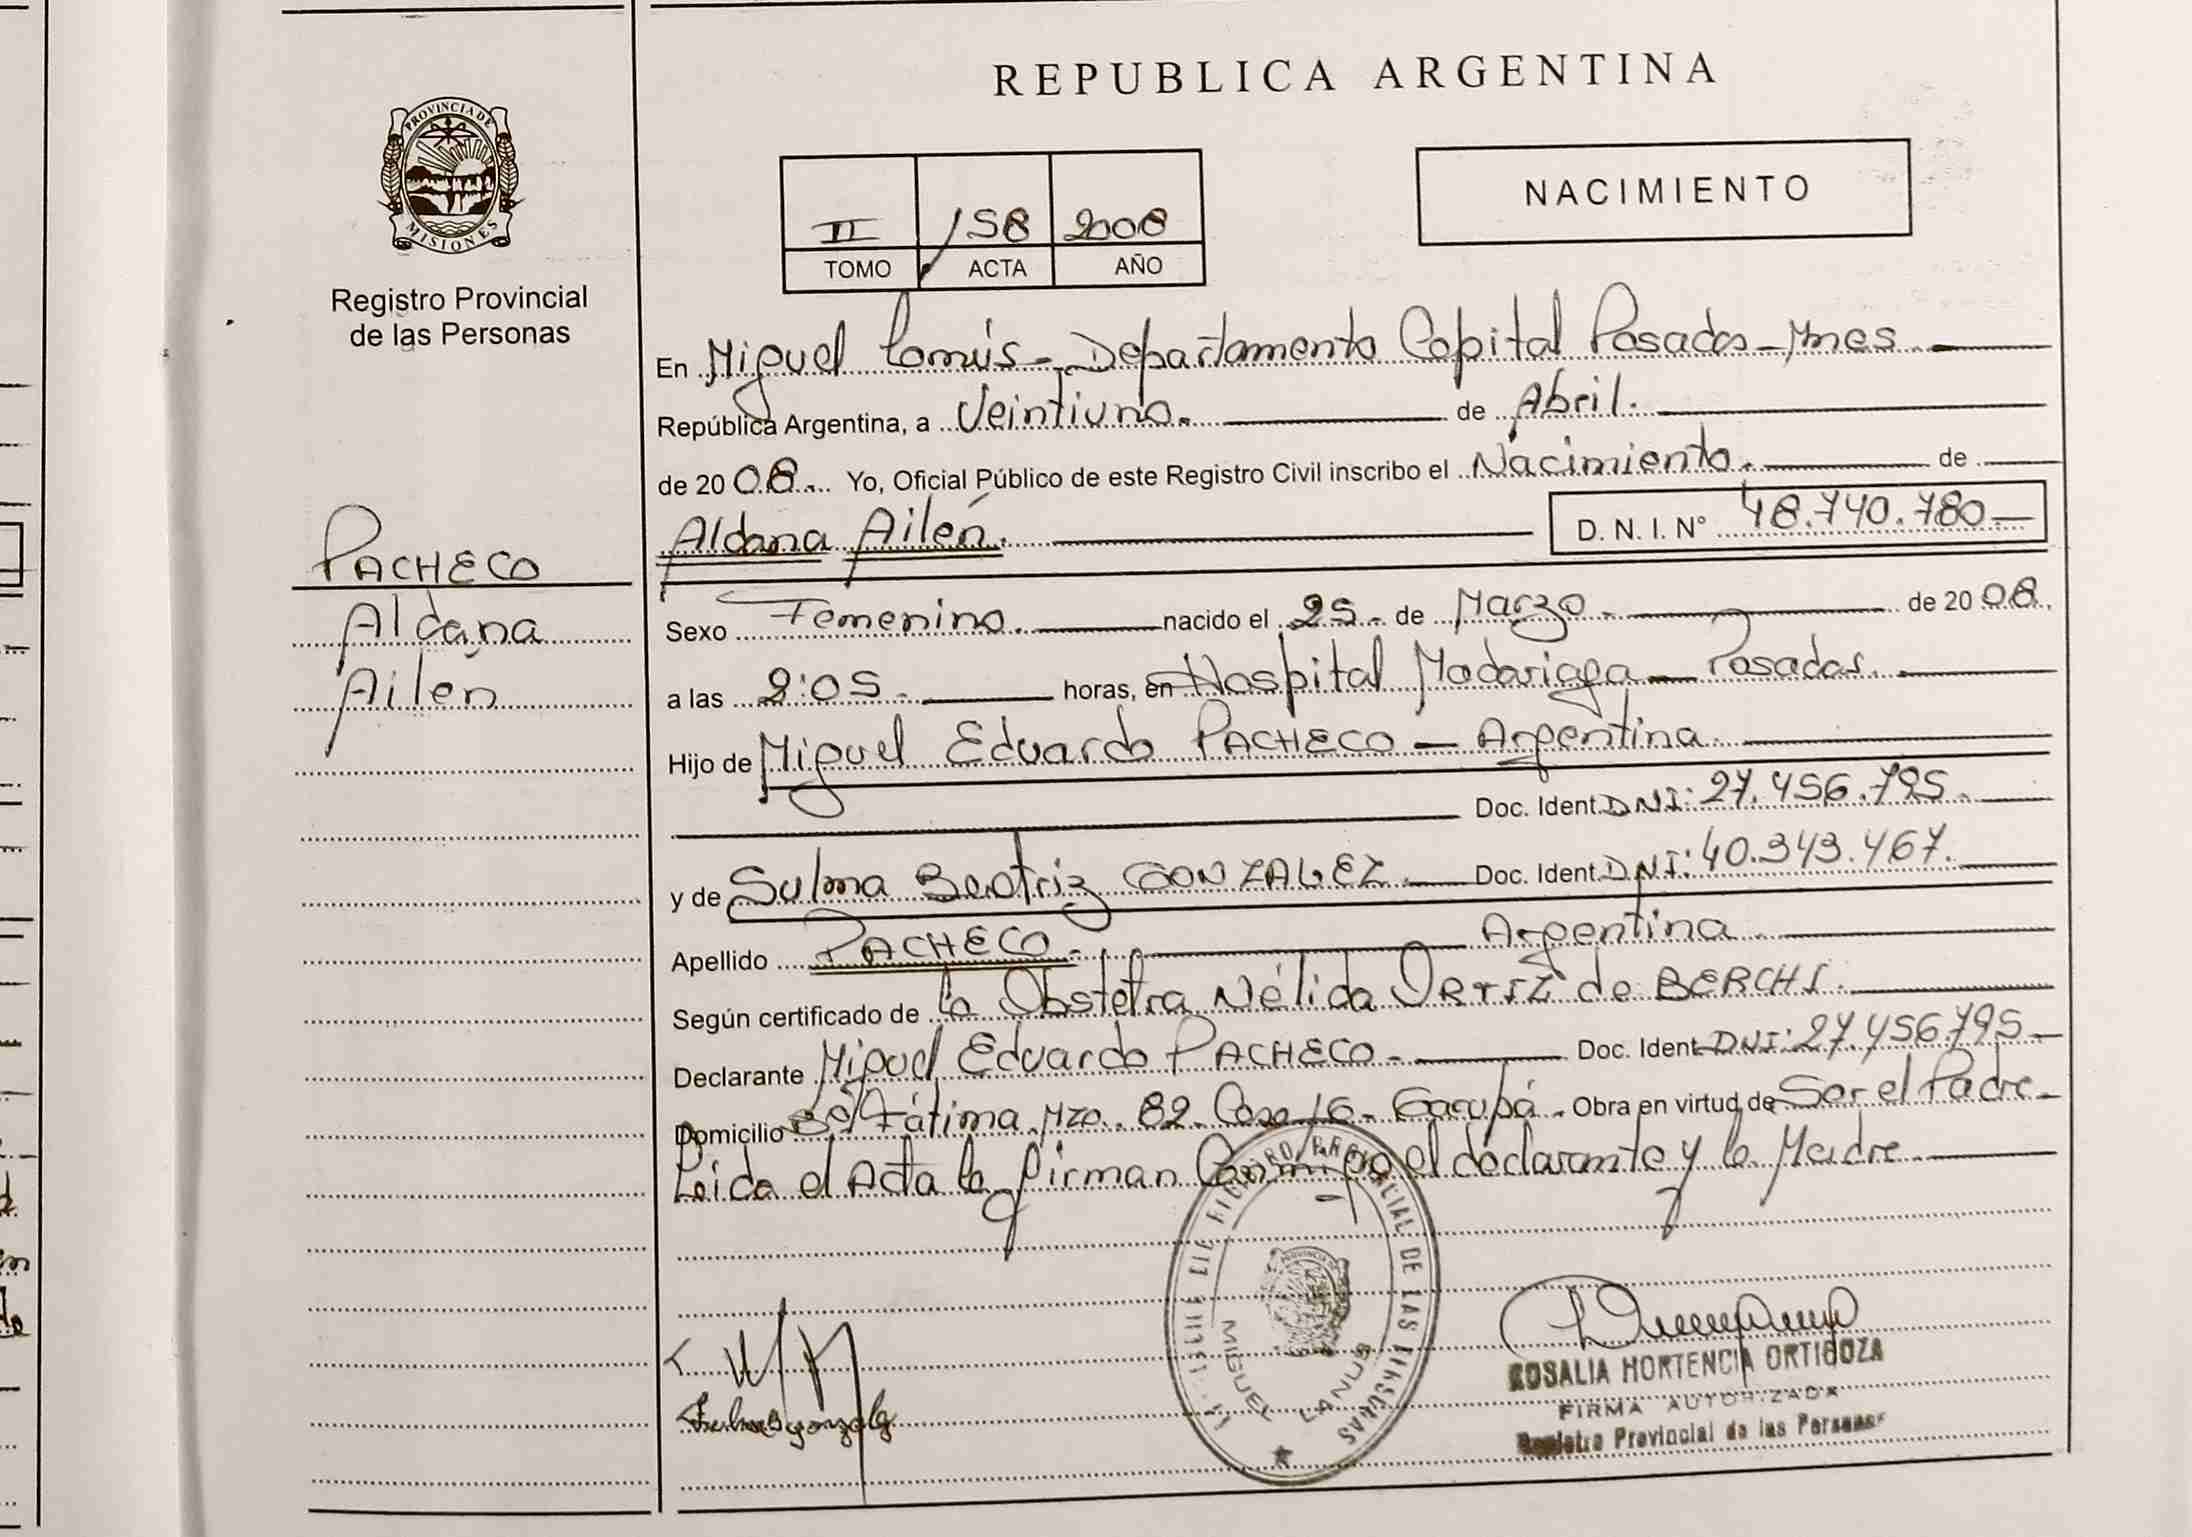 REPUBLICA ARGENTINA
PROVINCIA DE
MISIONES
Registro Provincial
de las Personas
NACIMIENTO
II 158 2008
TOMO ACTA AÑO
En Miguel - Departamento Capital Posadas - Mnes
República Argentina, a Veintiuno. de Abril.
de 2008. Yo, Oficial Público de este Registro Civil inscribo el Nacimiento. de
Aldana Ailén. D. N. I. N° 48.740.780
PACHECO
Aldana
Ailén
Sexo Femenino. nacido el 25 - de Marzo. de 2008.
a las 2:05 - horas, en Hospital Madariaga - Posadas.
Hijo de Miguel Eduardo PACHECO - Argentina.
Doc. Ident. DNI: 27.456.795.
y de Sulma Beatriz GONZALEZ. Doc. Ident. DNI: 40.343.467.
Apellido PACHECO. Argentina
Según certificado de la Obstetra Nélida ORTIZ de BERCHI.
Declarante Miguel Eduardo PACHECO - Doc. Ident. DNI: 27.456795
Domicilio Bº Fátima Mza. 82 Casa 16 - Garupá. Obra en virtud de Ser el Padre
Leida el Acta la firman Conmigo el declarante y la Madre
REGISTRO PROVINCIAL DE LAS PERSONAS
PROVINCIA
MIGUEL LANUS
ROSALIA HORTENCIA ORTIGOZA
FIRMA AUTORIZADA
Registro Provincial de las Personas